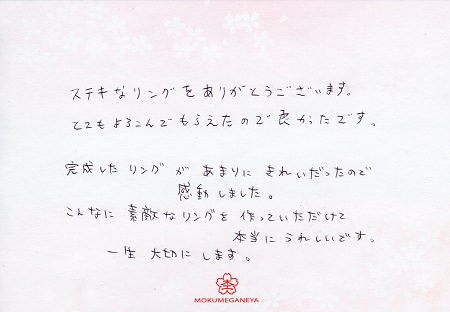 ステキなリングをありがとうございます。
とてもよろこんでもらえたので良かったです。
完成したリングがあまりにきれいだったので
感動しました。
こんなに素敵なリングを作っていただけて
本当にうれしいです。
一生大切にします。
MOKUMEGANEYA